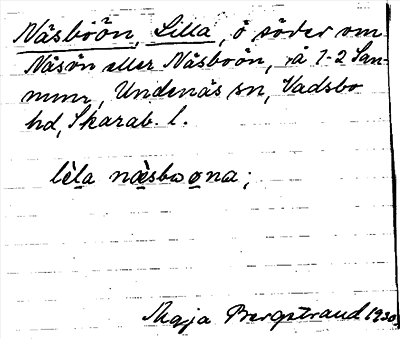 Näsböön, Lilla, ö söder om
Näsön eller Näsböön, på 1-2 San-
mm, Undenäs sn, Vadsbo
hd, Skarab. l.
lèla næ̀sbo ona;
Maja Bergstrand 1930.